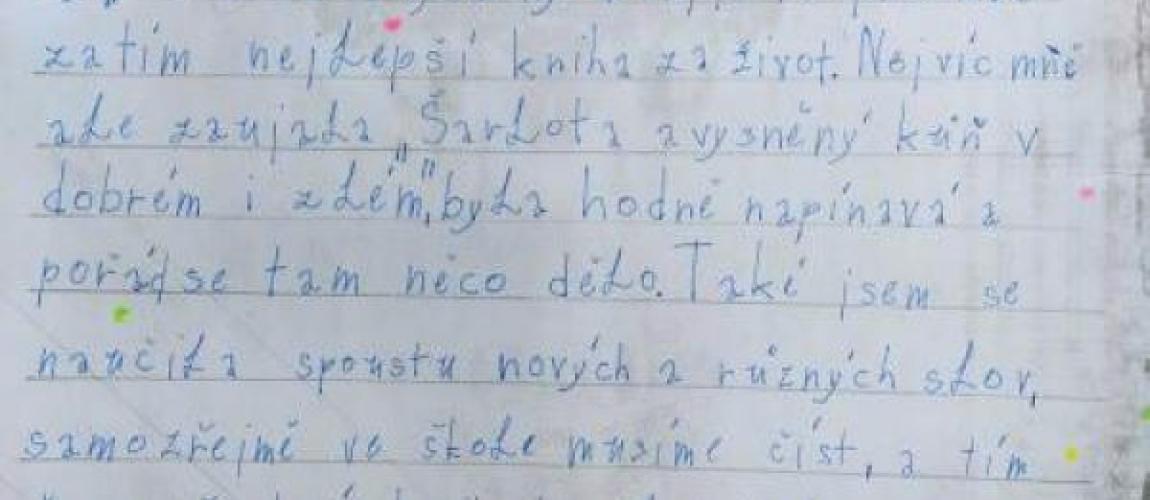 zatím nejlepší kniha za život. Nejvíc mně
ale zaujala „Šarlota a vysněný kůň v
dobrém i zlém", byla hodně napínavá a
pořád se tam něco dělo. Také jsem se
naučila spoustu nových a různých slov,
samozřejmě ve škole musíme číst, a tím